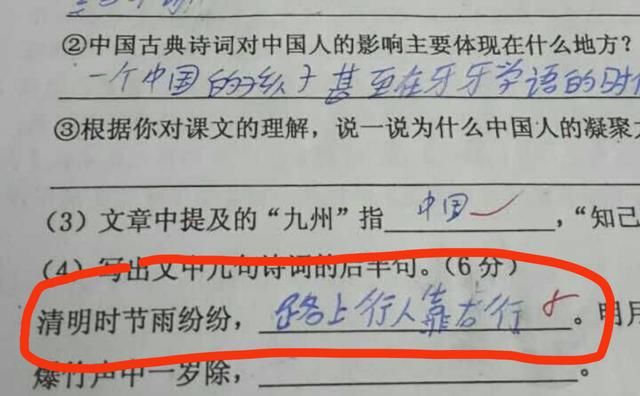 ②中国古典诗词对中国人的影响主要体现在什么地方?
一个中国的孩子甚至在牙牙学语的时
③根据你对课文的理解,说一说为什么中国人的凝聚
(3)文章中提及的“九州”指 中国 ,“知己
(4)写出文中几句诗词的后半句。(6分)
清明时节雨纷纷, 路上行人靠右行 。明月
爆竹声中一岁除, 。